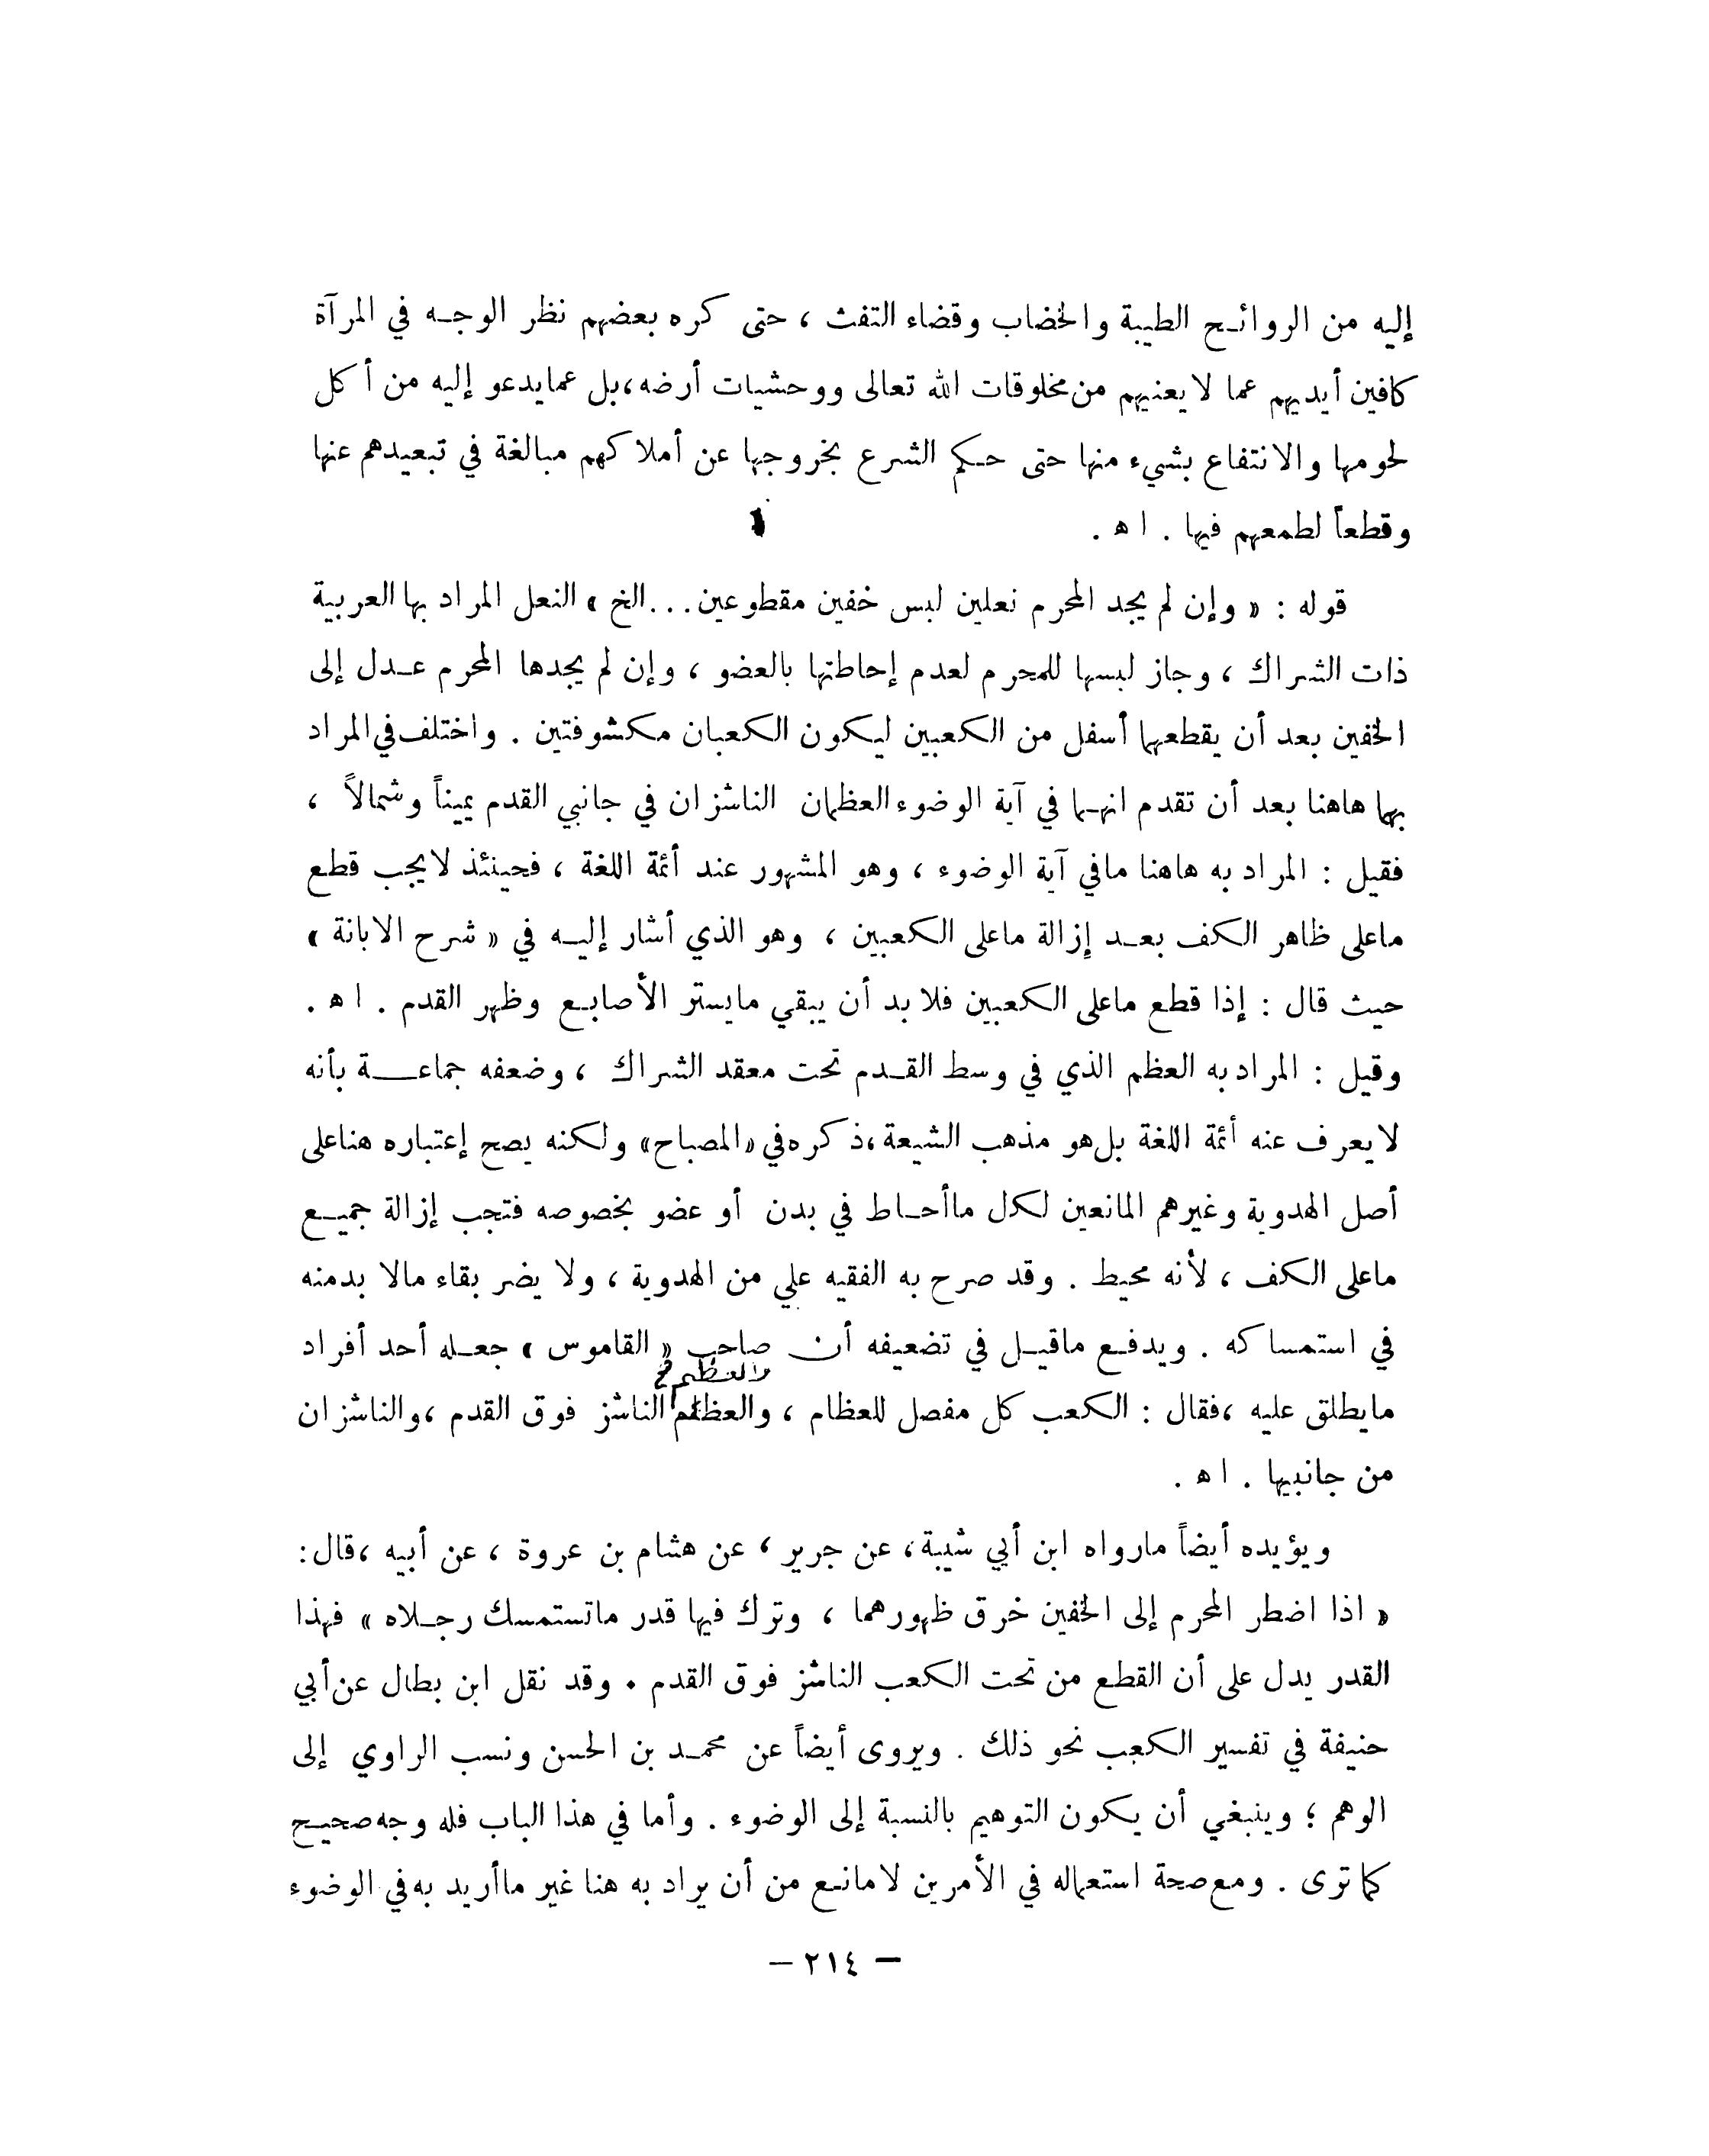 إليه من الروائح الطيبة والخضاب وقضاء التفث ، حتى كره بعضهم نظر الوجه في المرآة
كافين أيديهم عما لا يعنيهم من مخلوقات الله تعالى ووحشيات أرضه ، بل عما يدعو إليه من أكل
لحومها والانتفاع بشيء منها حتى حكم الشرع بخروجها عن أملاكهم مبالغة في تبعيدهم عنها
وقطعاً لطمعهم فيها . ا ه .
قوله : « وإن لم يجد المحرم نعلين لبس خفين مقطوعين...الخ » النعل المراد بها العربية
ذات الشراك ، وجاز لبسها للمحرم لعدم إحاطتها بالعضو ، وإن لم يجدها المحرم عدل إلى
الخفين بعد أن يقطعهما أسفل من الكعبين ليكون الكعبان مكشوفتين . واختلف في المراد
بهما هاهنا بعد أن تقدم انهما في آية الوضوء العظمان الناشزان في جانبي القدم يميناً وشمالاً ،
فقيل : المراد به هاهنا مافي آية الوضوء ، وهو المشهور عند أئمة اللغة ، فحينئذ لا يجب قطع
ماعلى ظاهر الكف بعد إزالة ماعلى الكعبين ، وهو الذي أشار إليه في « شرح الابانة »
حيث قال : إذا قطع ماعلى الكعبين فلا بد أن يبقي مايستر الأصابع وظهر القدم . ا ه .
وقيل : المراد به العظم الذي في وسط القدم تحت معقد الشراك ، وضعفه جماعة بأنه
لا يعرف عنه أئمة اللغة بل هو مذهب الشيعة ، ذكره في « المصباح » ولكنه يصح إعتباره هنا على
أصل الهدوية وغيرهم المانعين لكل ماأحاط في بدن أو عضو بخصوصه فتجب إزالة جميع
ماعلى الكف ، لأنه محيط . وقد صرح به الفقيه علي من الهدوية ، ولا يضر بقاء مالا بد منه
في استمساكه . ويدفع ماقيل في تضعيفه أن صاحب « القاموس » جعله أحد أفراد
والعظم
مايطلق عليه ، فقال : الكعب كل مفصل للعظام ، والعظم الناشز فوق القدم ، والناشزان
من جانبيها . ا ه .
ويؤيده أيضاً مارواه ابن أبي شيبة ، عن جرير ، عن هشام بن عروة ، عن أبيه ، قال :
« اذا اضطر المحرم إلى الخفين خرق ظهورهما ، وترك فيها قدر ماتستمسك رجلاه » فهذا
القدر يدل على أن القطع من تحت الكعب الناشز فوق القدم . وقد نقل ابن بطال عن أبي
حنيفة في تفسير الكعب نحو ذلك . ويروى أيضاً عن محمد بن الحسن ونسب الراوي إلى
الوهم ؛ وينبغي أن يكون التوهيم بالنسبة إلى الوضوء . وأما في هذا الباب فله وجه صحيح
كما ترى . ومع صحة استعماله في الأمرين لا مانع من أن يراد به هنا غير ماأريد به في الوضوء
– ٢١٤ –